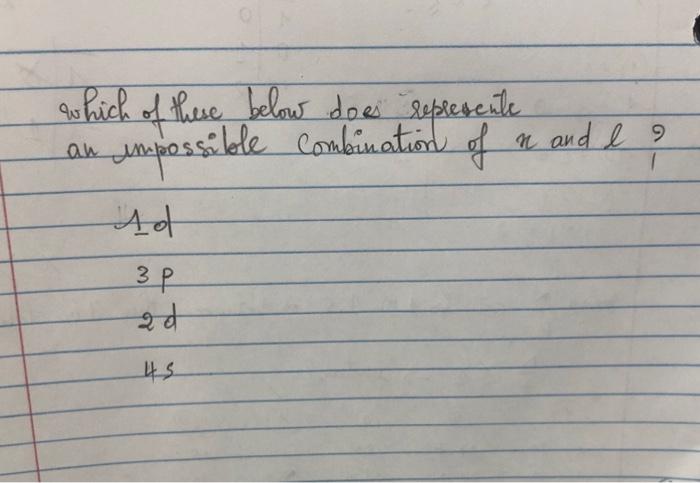 which of these below does represente
an impossible combination of n and l ?
1d
3p
2d
4s